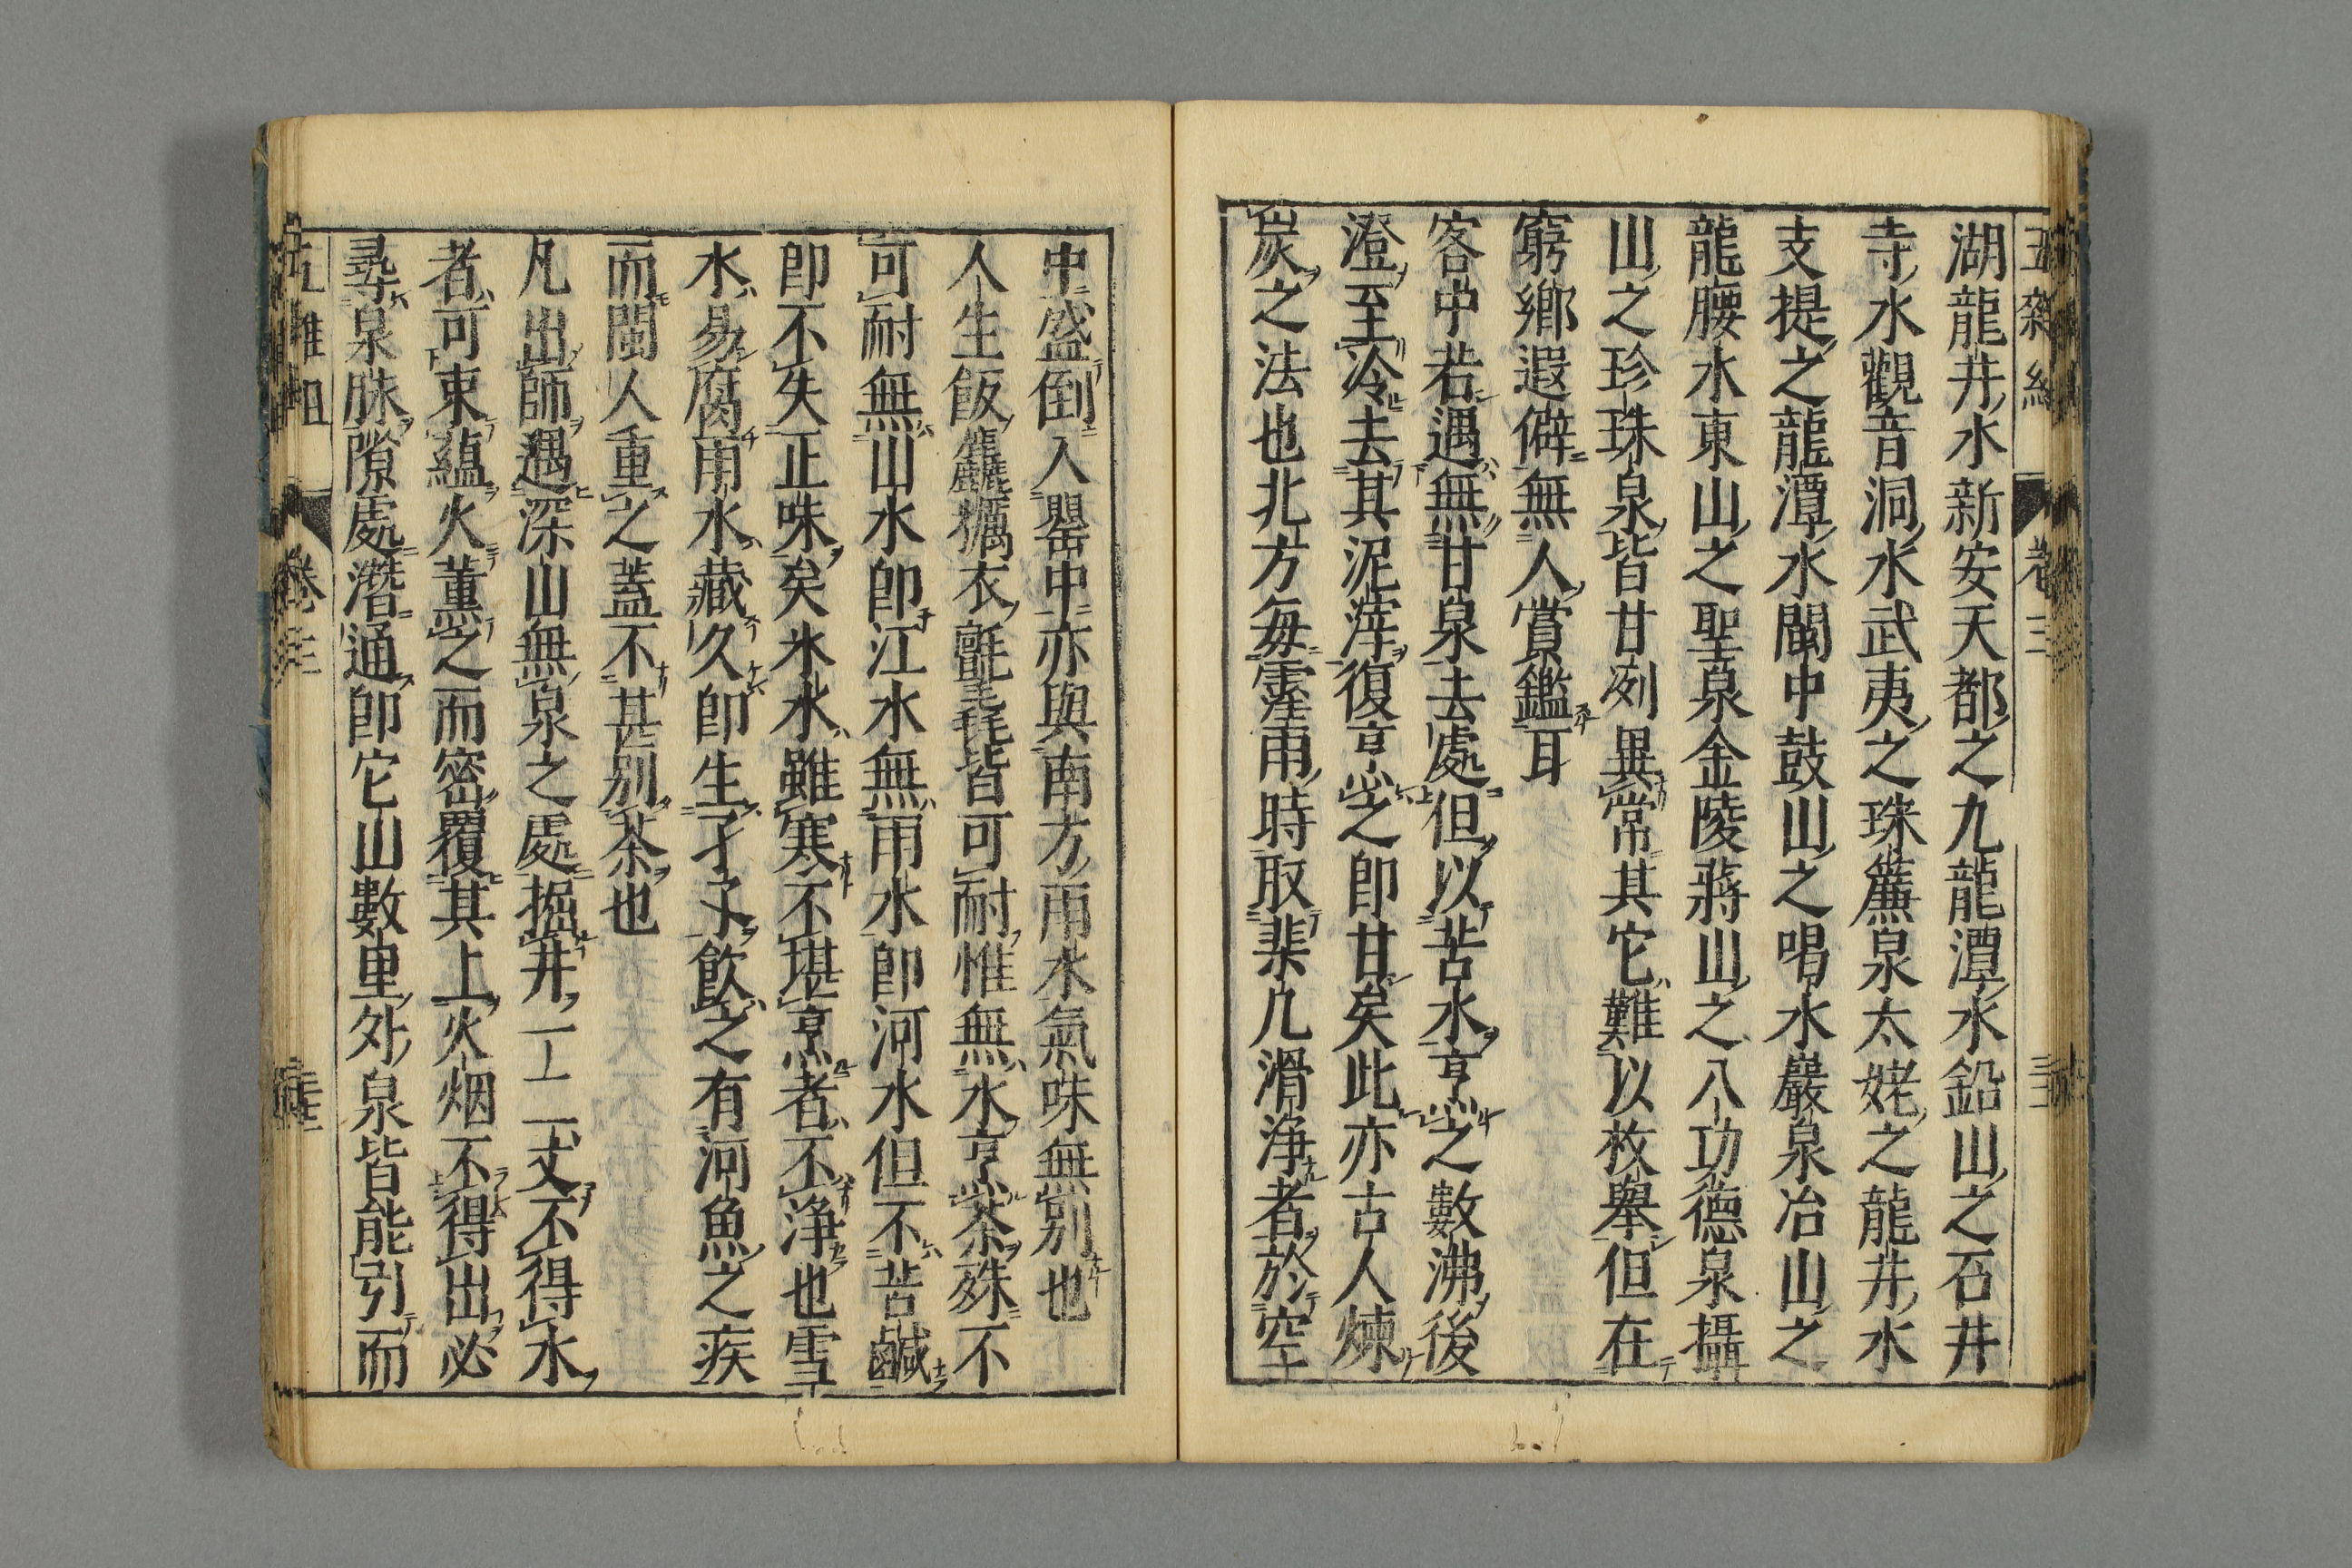 湖龍井水新安天都之九龍潭水鉛山之石井
寺水觀音洞水武夷之珠簾泉太姥之龍井水
支提之龍潭水閩中鼓山之喝水巖泉冶山之
龍腰水東山之聖泉金陵蔣山之八功德泉攝
山之珍珠泉皆甘冽異常其它難以枚舉但在
窮鄉遐僻無人賞鑑耳
客中若遇無甘泉去處但以苦水烹之數沸後
澄至冷去其泥滓復烹之即甘矣此亦古人煉
炭之法也北方每霪雨時取棐几滑淨者於空
中盛倒入罌中亦與南方雨水氣味無別也
人生飯麤糲衣氈毳皆可耐惟無水烹茶殊不
可耐無山水即江水無雨水即河水但不苦鹹
即不失正味矣氷水雖寒不堪烹者不淨也雪
水易腐雨水藏久即生孑孓飲之有河魚之疾
而閩人重之蓋不甚別茶也
凡出師遇深山無泉之處掘井一二丈不得水
者可束蘊火薰之而密覆其上火烟不得出必
尋泉脉隙處潛通即它山數里外泉皆能引而
卷三